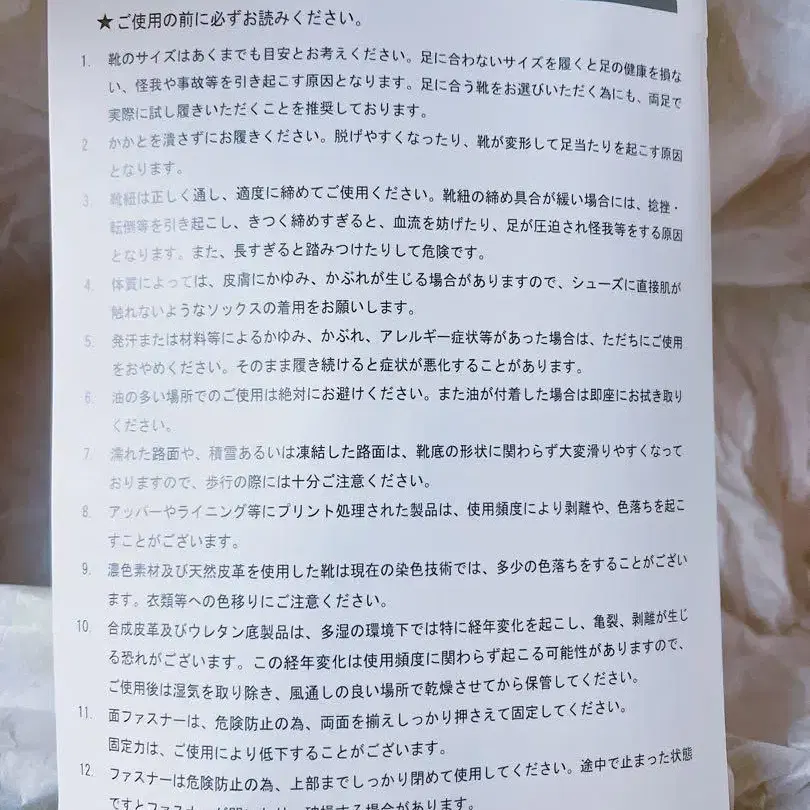 ★ご使用の前に必ずお読みください。
1. 靴のサイズはあくまでも目安とお考えください。足に合わないサイズを履くと足の健康を損な
い、怪我や事故等を引き起こす原因となります。足に合う靴をお選びいただく為にも、両足で
実際に試し履きいただくことを推奨しております。
2 かかとを潰さずにお履きください。脱げやすくなったり、靴が変形して足当たりを起こす原因
となります。
3. 靴紐は正しく通し、適度に締めてご使用ください。靴紐の締め具合が緩い場合には、捻挫・
転倒等を引き起こし、きつく締めすぎると、血流を妨げたり、足が圧迫され怪我等をする原因
となります。また、長すぎると踏みつけたりして危険です。
4. 体質によっては、皮膚にかゆみ、かぶれが生じる場合がありますので、シューズに直接肌が
触れないようなソックスの着用をお願いします。
5. 発汗または材料等によるかゆみ、かぶれ、アレルギー症状等があった場合は、ただちにご使用
をおやめください。そのまま履き続けると症状が悪化することがあります。
6. 油の多い場所でのご使用は絶対にお避けください。また油が付着した場合は即座にお拭き取り
ください。
7. 濡れた路面や、積雪あるいは凍結した路面は、靴底の形状に関わらず大変滑りやすくなって
おりますので、歩行の際には十分ご注意ください。
8. アッパーやライニング等にプリント処理された製品は、使用頻度により剥離や、色落ちを起こ
すことがございます。
9. 濃色素材及び天然皮革を使用した靴は現在の染色技術では、多少の色落ちをすることがござい
ます。衣類等への色移りにご注意ください。
10. 合成皮革及びウレタン底製品は、多湿の環境下では特に経年変化を起こし、亀裂、剥離が生じ
る恐れがございます。この経年変化は使用頻度に関わらず起こる可能性がありますので、
ご使用後は湿気を取り除き、風通しの良い場所で乾燥させてから保管してください。
11. 面ファスナーは、危険防止の為、両面を揃えしっかり押さえて固定してください。
固定力は、ご使用により低下することがございます。
12. ファスナーは危険防止の為、上部までしっかり閉めて使用してください。途中で止まった状態
ですとファスナーが
場合があります。